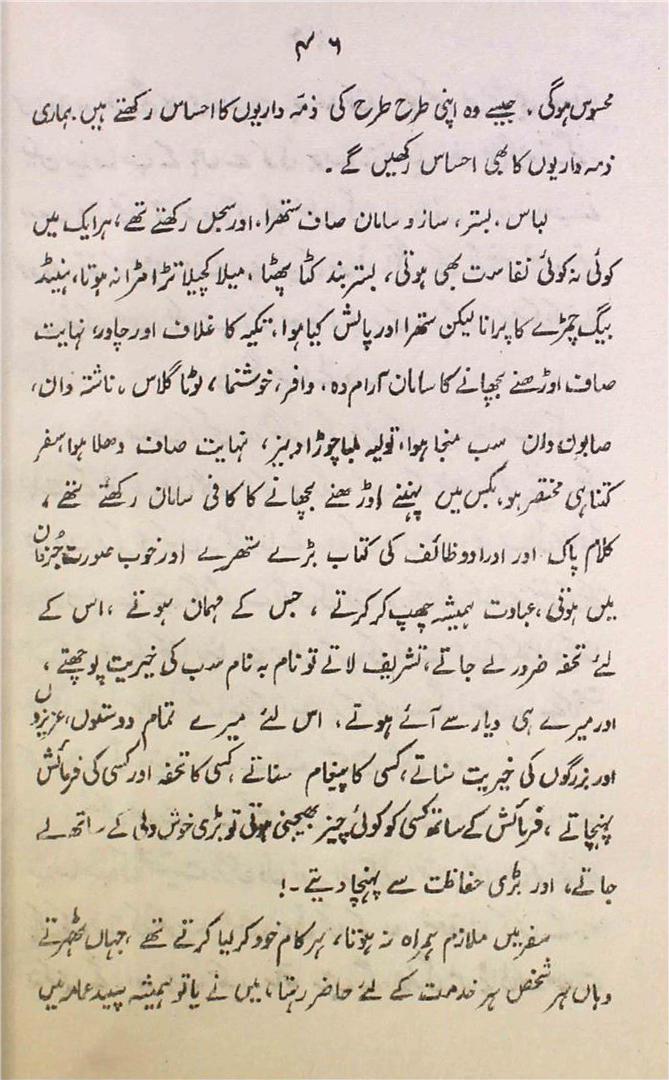 ۴۶
محسوس ہوگی، جیسے وہ اپنی طرح طرح کی ذمّہ داریوں کا احساس رکھتے ہیں۔ ہماری
ذمہ داریوں کا بھی احساس رکھیں گے۔
لباس، بستر، ساز و سامان صاف ستھرا، اور سجل رکھتے تھے، ہر ایک میں
کوئی نہ کوئی نفاست بھی ہوتی، بستر بند کٹا پھٹا، میلا کچیلا تڑا مڑا نہ ہوتا، ہینڈ
بیگ چمڑے کا پرانا لیکن ستھرا اور پالش کیا ہوا، تکیہ کا غلاف اور چادر، نہایت
صاف اوڑھنے بچھانے کا سامان آرام دہ، وافر، خوشنما، لوٹا گلاس، ناشتہ دان،
صابون دان سب منجا ہوا، تولیہ لمبا چوڑا دبیز، نہایت صاف دھلا ہوا سفر
کتنا ہی مختصر ہو، بکس میں پہننے اوڑھنے بچھانے کا کافی سامان رکھتے تھے،
کلام پاک اور اوراد و وظائف کی کتاب بڑے ستھرے اور خوب صورت جُزدان
میں ہوتی، عبادت ہمیشہ چھپ کر کرتے، جس کے مہمان ہوتے، اس کے
لئے تحفہ ضرور لے جاتے، تشریف لاتے تو نام بہ نام سب کی خیریت پوچھتے،
اور میرے ہی دیار سے آئے ہوتے، اس لئے میرے تمام دوستوں، عزیزوں
اور بزرگوں کی خیریت سناتے، کسی کا پیغام سناتے، کسی کا تحفہ اور کسی کی فرمائش
پہنچاتے، فرمائش کے ساتھ کسی کو کوئی چیز بھیجنی ہوتی تو بڑی خوش دلی کے ساتھ لے
جاتے، اور بڑی حفاظت سے پہنچا دیتے۔!
سفر میں ملازم ہمراہ نہ ہوتا، ہر کام خود کر لیا کرتے تھے، جہاں ٹھہرتے
وہاں ہر شخص ہر خدمت کے لئے حاضر رہتا، میں نے یا تو ہمیشہ سپید عمامہ میں